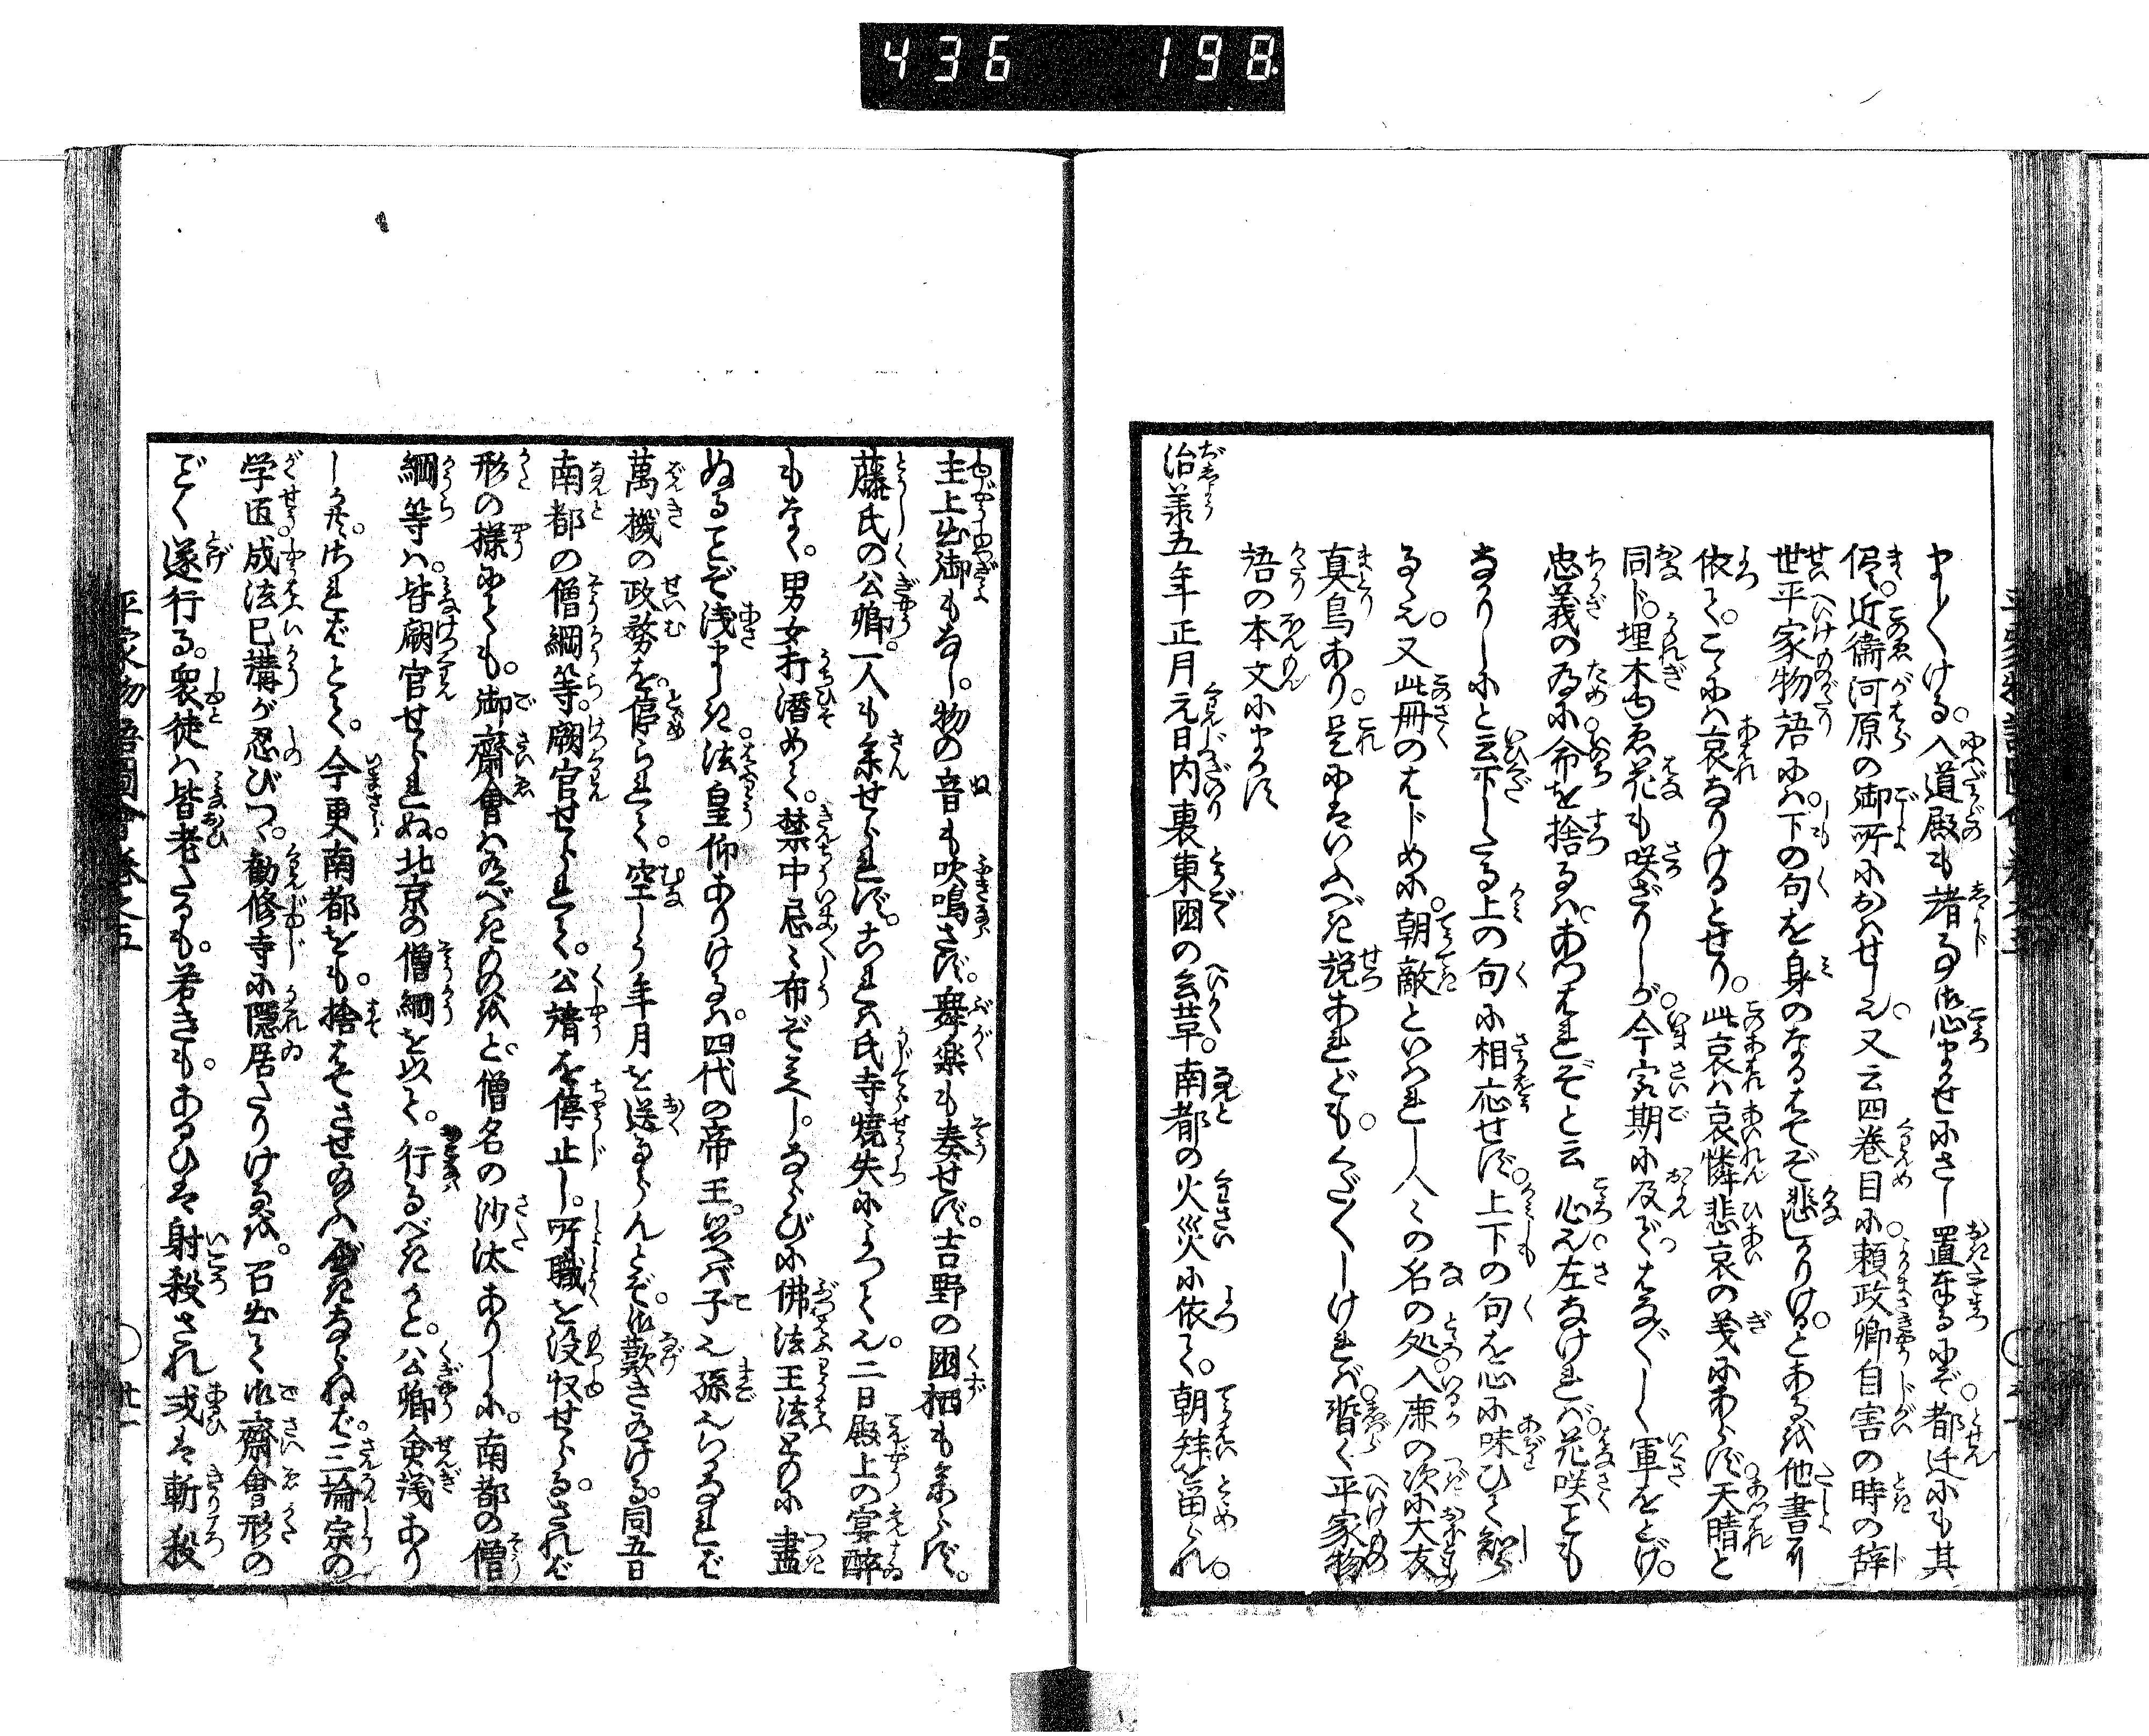 436 198
ましくける。入道殿も諸事御心まかせにさし置奉るにぞ。都迁にも其
儘。近衞河原の御所におはせし也。又云四巻目に。頼政卿自害の時の辞
世平家物語には。下の句を身のなるはてぞ悲しかりける。とある を他書 
依て。こゝには哀なりけるとせり。此哀は哀憐悲哀の義にあらず。天晴と
同じ。埋木 花も咲ざりしが。今宴期に及びてはな〴〵しく軍をとげ。
忠義の為に命を捨るは。あつはれぞと云心也。左なければ。花咲ことも
なかりしにと云下したる上の句に相応せず。上下の句を心に味ひて知
る也。又此冊のはじめに。朝敵といはれし人々の名の処。入鹿の次に大友
真鳥あり。是にはいふべき説あれども。くだ〳〵しければ。暫く平家物
語の本文にまかす
治羕五年正月元日内裏東国の兵革。南都の火災に依て。朝拜を畄られ。
主上出御もなし。物の音も吹鳴さず。舞楽も奏せず。吉野の国栖も参らず。
藤氏の公卿。一人も参せられず。これは氏寺焼失によつて也。二日殿上の宴醉
もなく。男女打潜めて。禁中忌々布ぞ見へし。ならびに佛法王法ともに盡
ぬることぞ浅ましき。法皇仰ありけるは。四代の帝王。思へば子也孫也。いかなれば
萬機の政務を。停られて。空しう年月を送るらんとぞ。御歎き有ける。同五日
南都の僧綱等。闕官せられて。公請を停止し。所職を没収せらる。されば
形の様にても。御齋會は有べきものをと。僧名の沙汰ありしに。南都の僧
綱等は。皆闕官せられぬ。北京の僧綱を以て。行るべきかと。公卿僉議あり
しかど。さればとて。今更南都をも。捨はてさせ給ふべきならねば。三論宗の
学匠。成法已講が忍びつゝ。勧修寺に隠居たりけるを。召出て御齋會形の
ごく遂行る。衆徒は皆老たるも。若きも。あるひは射殺され或は斬殺
平家物語圖會巻之五
廿一